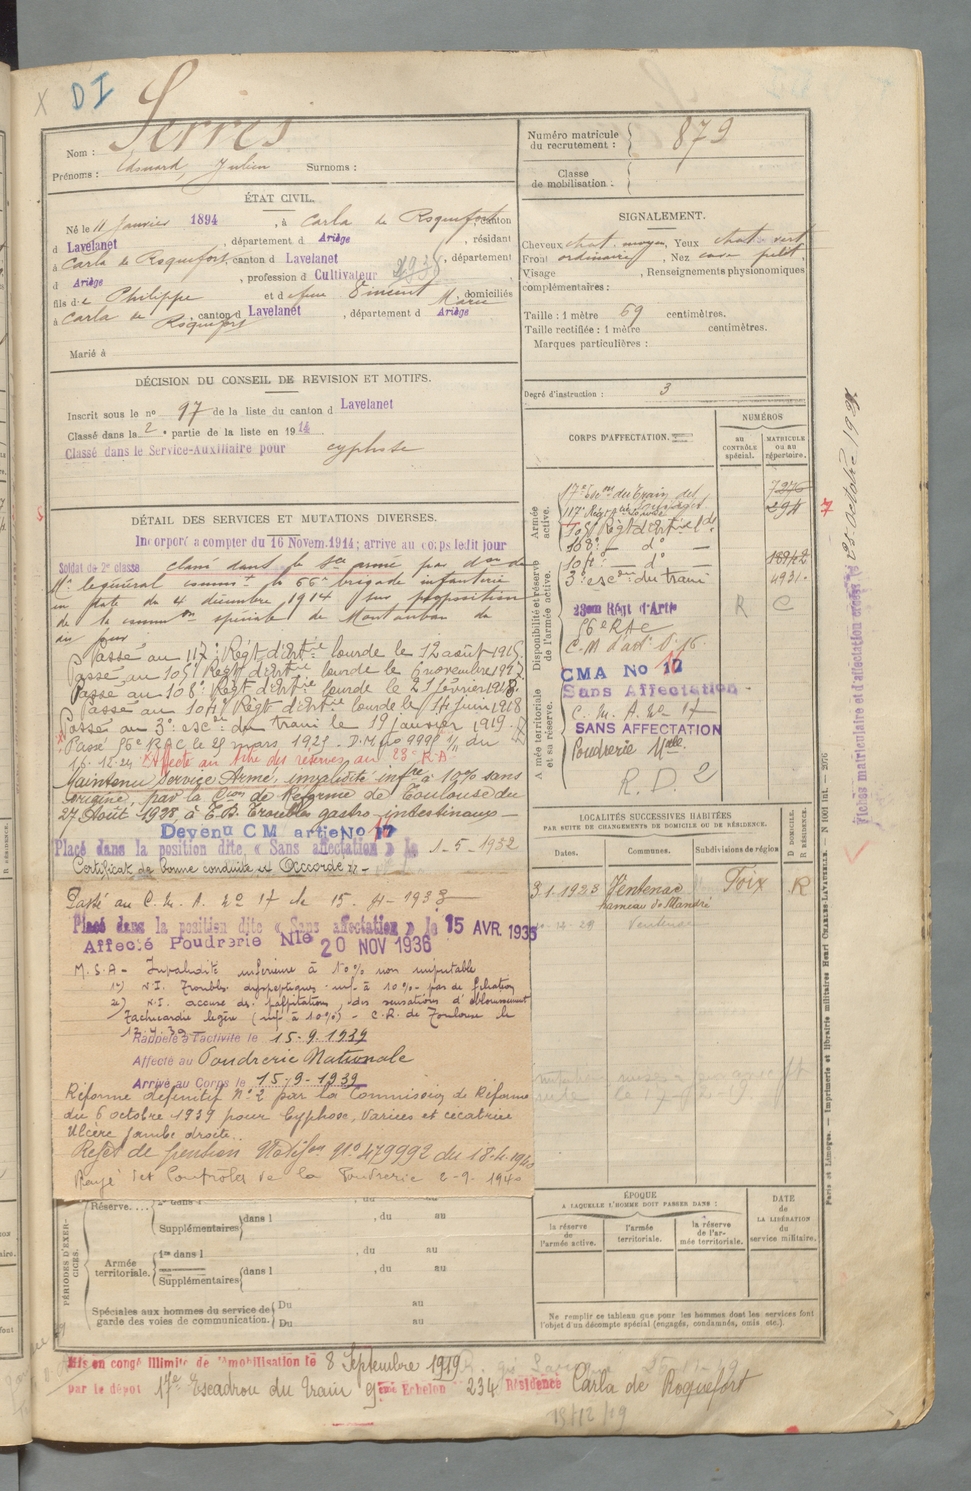 X DI
Serres
Nom :
Prénoms : Edouard, Julien Surnoms :
Numéro matricule du recrutement : 879
Classe de mobilisation :
ÉTAT CIVIL.
Né le 11 Janvier 1894, à Carla de Roquefort, canton
d Lavelanet, département d Ariège, résidant
à Carla de Roquefort, canton d Lavelanet, département
d Ariège, profession d Cultivateur
fils de Philippe et de feue Vincent Marie domiciliés
à Carla de Roquefort, canton d Lavelanet, département d Ariège
Marié à
SIGNALEMENT.
Cheveux chat. moyen, Yeux chat. vert
Front ordinaire, Nez cave petit.
Visage , Renseignements physionomiques
complémentaires :
Taille : 1 mètre 69 centimètres.
Taille rectifiée : 1 mètre centimètres.
Marques particulières :
Degré d'instruction : 3
DÉCISION DU CONSEIL DE REVISION ET MOTIFS.
Inscrit sous le n° 97 de la liste du canton d Lavelanet
Classé dans la 2e partie de la liste en 1914
Classé dans le Service-Auxiliaire pour cyphose
DÉTAIL DES SERVICES ET MUTATIONS DIVERSES.
Incorporé a compter du 16 Novem. 1914; arrive au corps ledit jour
Soldat de 2e classe classé dans le Sce armé par don de
Mr le général commt la 66e brigade infanterie
en date du 4 décembre 1914 sur proposition
de la common spéciale de Montauban du
du jour
Passé au 117e Régt d'Artie lourde le 12 août 1915.
Passé au 105e Régt d'Artie lourde le 6 novembre 1917.
Passé au 108e Régt d'Artie lourde le 21 février 1918.
Passé au 104e Régt d'Artie lourde le 14 juin 1918
Passé au 3e escon du train le 19 janvier 1919.
Passé 56e RAC le 25 mars 1925. D.M. no 9998 1/11 du
16.12.24 Affecté au Titre des réserves au 23e R.A.
Maintenu Service Armé, invalidité infre à 10% sans
origine, par la Con de Réforme de Toulouse du
27 Août 1928, à T.B. Troubles gastro-intestinaux
Devenu CM artie No 17
Placé dans la position dite « Sans affectation » le 1-5-1932
Certificat de bonne conduite est Accordé
Passé au C. M. A. No 17 le 15.
Placé dans la position dite « Sans affectation » le 15 AVR. 1935
Affecté Poudrerie Nle 20 NOV 1936
M.S.A - Invalidité inférieure à 10% non imputable
1°) N.I. Troubles dyspeptiques inf. à 10% - pas de filiation
2e) N.I. accuse des palpitations, des sensations d'éblouissement
Tachycardie légère (inf à 10%) - C.R. de Toulouse le
Rappelé à l'activité le 15-9-1939
Affecté au Poudrerie Nationale
Arrivé au Corps le 15-9-1939
Réformé définitif No 2 par la Commission de Réforme
du 6 octobre 1939 pour Cyphose, Varices et cicatrice
Ulcère jambe droite.
Rejet de pension Notifon No 479992 du 18.4.1940
Rayé des Contrôles de la Poudrerie 2-9-1940
CORPS D'AFFECTATION.
NUMÉROS
AU CONTRÔLE spécial.
MATRICULE OU AU répertoire.
Armée active.
Disponibilité et réserve de l'armée active.
Armée territoriale et sa réserve.
17e Escon du Train 7276
117e Régt d'Artie lourde 294
108e — do —
104e — do — 18942
3e escon du train 4931
23eme Régt d'Artie R C
56e RAC
C.M d'artie No 16
CMA No 17
Sans Affectation
C. M. A. No 17
SANS AFFECTATION
Poudrerie Nle
R. D. 2
LOCALITÉS SUCCESSIVES HABITÉES
PAR SUITE DE CHANGEMENTS DE DOMICILE OU DE RÉSIDENCE.
Dates. Communes. Subdivisions de région D DOMICILE. R RÉSIDENCE.
31.1.1923 Ventenac Foix R
hameau de Mandré
Ventenac
PÉRIODES D'EXERCICES.
Réserve.... dans l , du au
Supplémentaires dans l , du au
Armée territoriale. 1re dans l , du au
Supplémentaires dans l , du au
Spéciales aux hommes du service de garde des voies de communication. Du au
Du au
ÉPOQUE
A LAQUELLE L'HOMME DOIT PASSER DANS :
la réserve de l'armée active.
l'armée territoriale.
la réserve de l'armée territoriale.
DATE de LA LIBÉRATION du service militaire.
Ne remplir ce tableau que pour les hommes dont les services font
l'objet d'un décompte spécial (engagés, condamnés, omis etc.).
Mis en congé illimité de démobilisation le 8 Septembre 1919
par le dépôt 17e Escadron du Train 9ème Echelon 234 Résidence Carla de Roquefort
15/12/19
Fiches matriculaire et d'affectation créées le 25 octobre 1927
Paris et Limoges. — Imprimerie et librairie militaires Henri CHARLES-LAVAUZELLE.